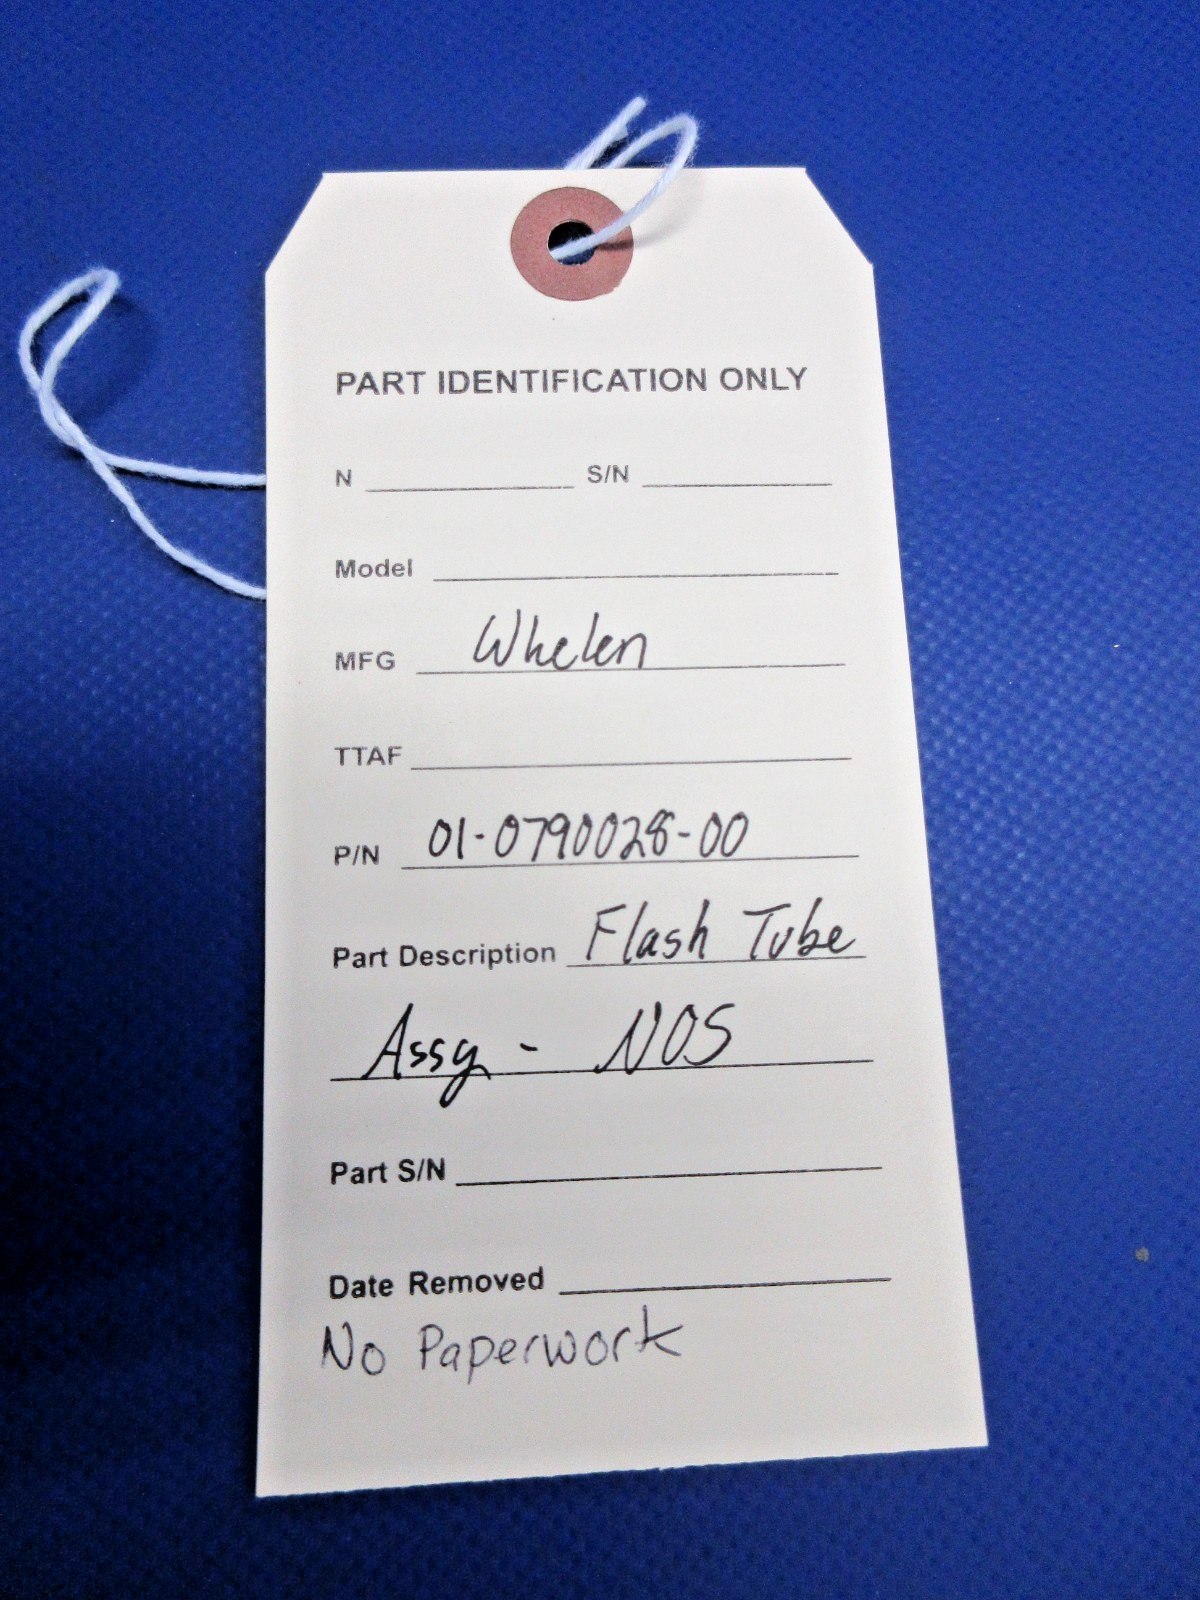 PART IDENTIFICATION ONLY
N S/N
Model
MFG Whelen
TTAF
P/N 01-0790028-00
Part Description Flash Tube
Assy - NOS
Part S/N
Date Removed
No Paperwork